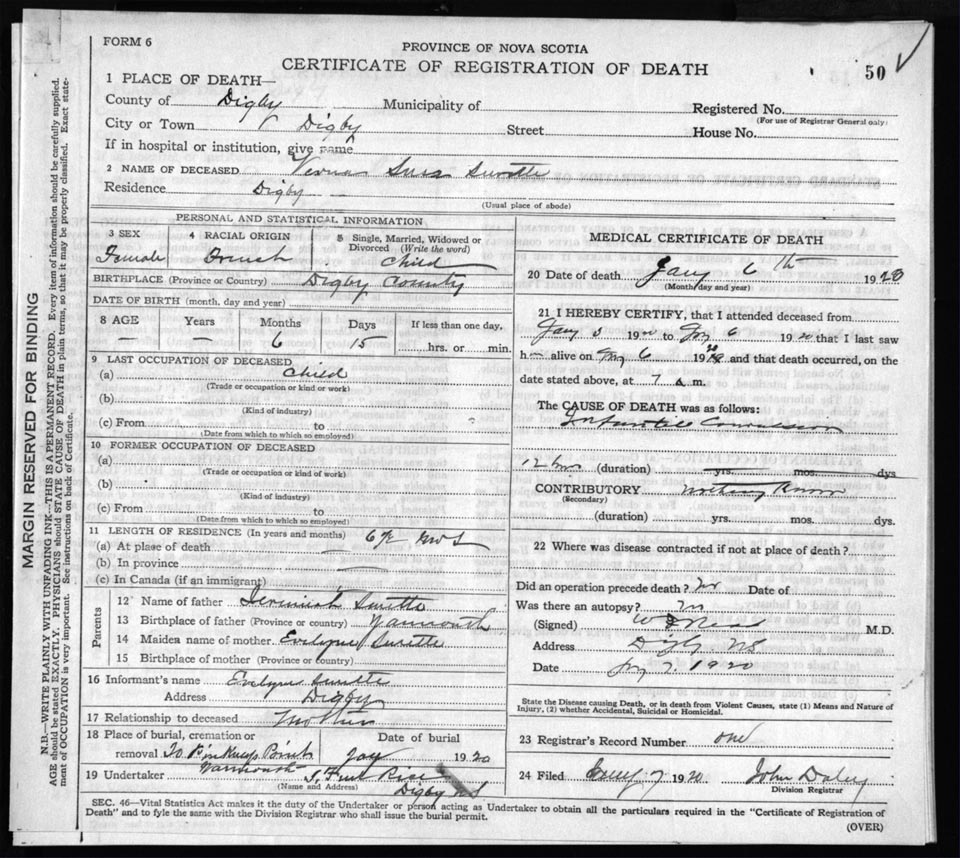 FORM 6
PROVINCE OF NOVA SCOTIA
CERTIFICATE OF REGISTRATION OF DEATH
50
1 PLACE OF DEATH—
County of Digby Municipality of Registered No.
(For use of Registrar General only)
City or Town Digby Street House No.
If in hospital or institution, give name
2 NAME OF DECEASED Verna Surette
Residence Digby
(Usual place of abode)
PERSONAL AND STATISTICAL INFORMATION
3 SEX 4 RACIAL ORIGIN 5 Single, Married, Widowed or Divorced (Write the word)
Female French Child
BIRTHPLACE (Province or Country) Digby County
DATE OF BIRTH (month, day and year)
8 AGE Years Months Days If less than one day,
— — 6 15 hrs. or min.
9 LAST OCCUPATION OF DECEASED
(a) Child
(Trade or occupation or kind of work)
(b)
(Kind of industry)
(c) From to
(Date from which to which so employed)
10 FORMER OCCUPATION OF DECEASED
(a)
(Trade or occupation or kind of work)
(b)
(Kind of industry)
(c) From to
(Date from which to which so employed)
11 LENGTH OF RESIDENCE (In years and months)
(a) At place of death 6½ mos
(b) In province
(c) In Canada (if an immigrant)
Parents
12 Name of father Surette
13 Birthplace of father (Province or country) Yarmouth
14 Maiden name of mother Evelyne Surette
15 Birthplace of mother (Province or country)
16 Informant's name Evelyne Surette
Address Digby
17 Relationship to deceased Mother
18 Place of burial, cremation or removal Date of burial
To Pinkneys Point Jany 1920
Yarmouth
19 Undertaker Rice
(Name and Address) Digby NS
MEDICAL CERTIFICATE OF DEATH
20 Date of death Jany 6th 1920
(Month, day and year)
21 I HEREBY CERTIFY, that I attended deceased from
Jany 5 1920 to Jny 6 1920 that I last saw
h— alive on Jny 6 1920 and that death occurred, on the
date stated above, at 7 a m.
The CAUSE OF DEATH was as follows:
Infantile Convulsions
12 hrs (duration) yrs. mos. dys
CONTRIBUTORY
(Secondary)
(duration) yrs. mos. dys.
22 Where was disease contracted if not at place of death?
Did an operation precede death? No Date of
Was there an autopsy? No
(Signed) M.D.
Address Digby NS
Date Jny 7. 1920
State the Disease causing Death, or in death from Violent Causes, state (1) Means and Nature of
Injury, (2) whether Accidental, Suicidal or Homicidal.
23 Registrar's Record Number one
24 Filed Jany 7 1920 John Daley
Division Registrar
SEC. 46—Vital Statistics Act makes it the duty of the Undertaker or person acting as Undertaker to obtain all the particulars required in the "Certificate of Registration of
Death" and to fyle the same with the Division Registrar who shall issue the burial permit.
(OVER)
MARGIN RESERVED FOR BINDING
N.B.—WRITE PLAINLY WITH UNFADING INK—THIS IS A PERMANENT RECORD. Every item of information should be carefully supplied.
AGE should be stated EXACTLY. PHYSICIANS should STATE CAUSE OF DEATH in plain terms, so that it may be properly classified. Exact state-
ment of OCCUPATION is very important. See instructions on back of Certificate.